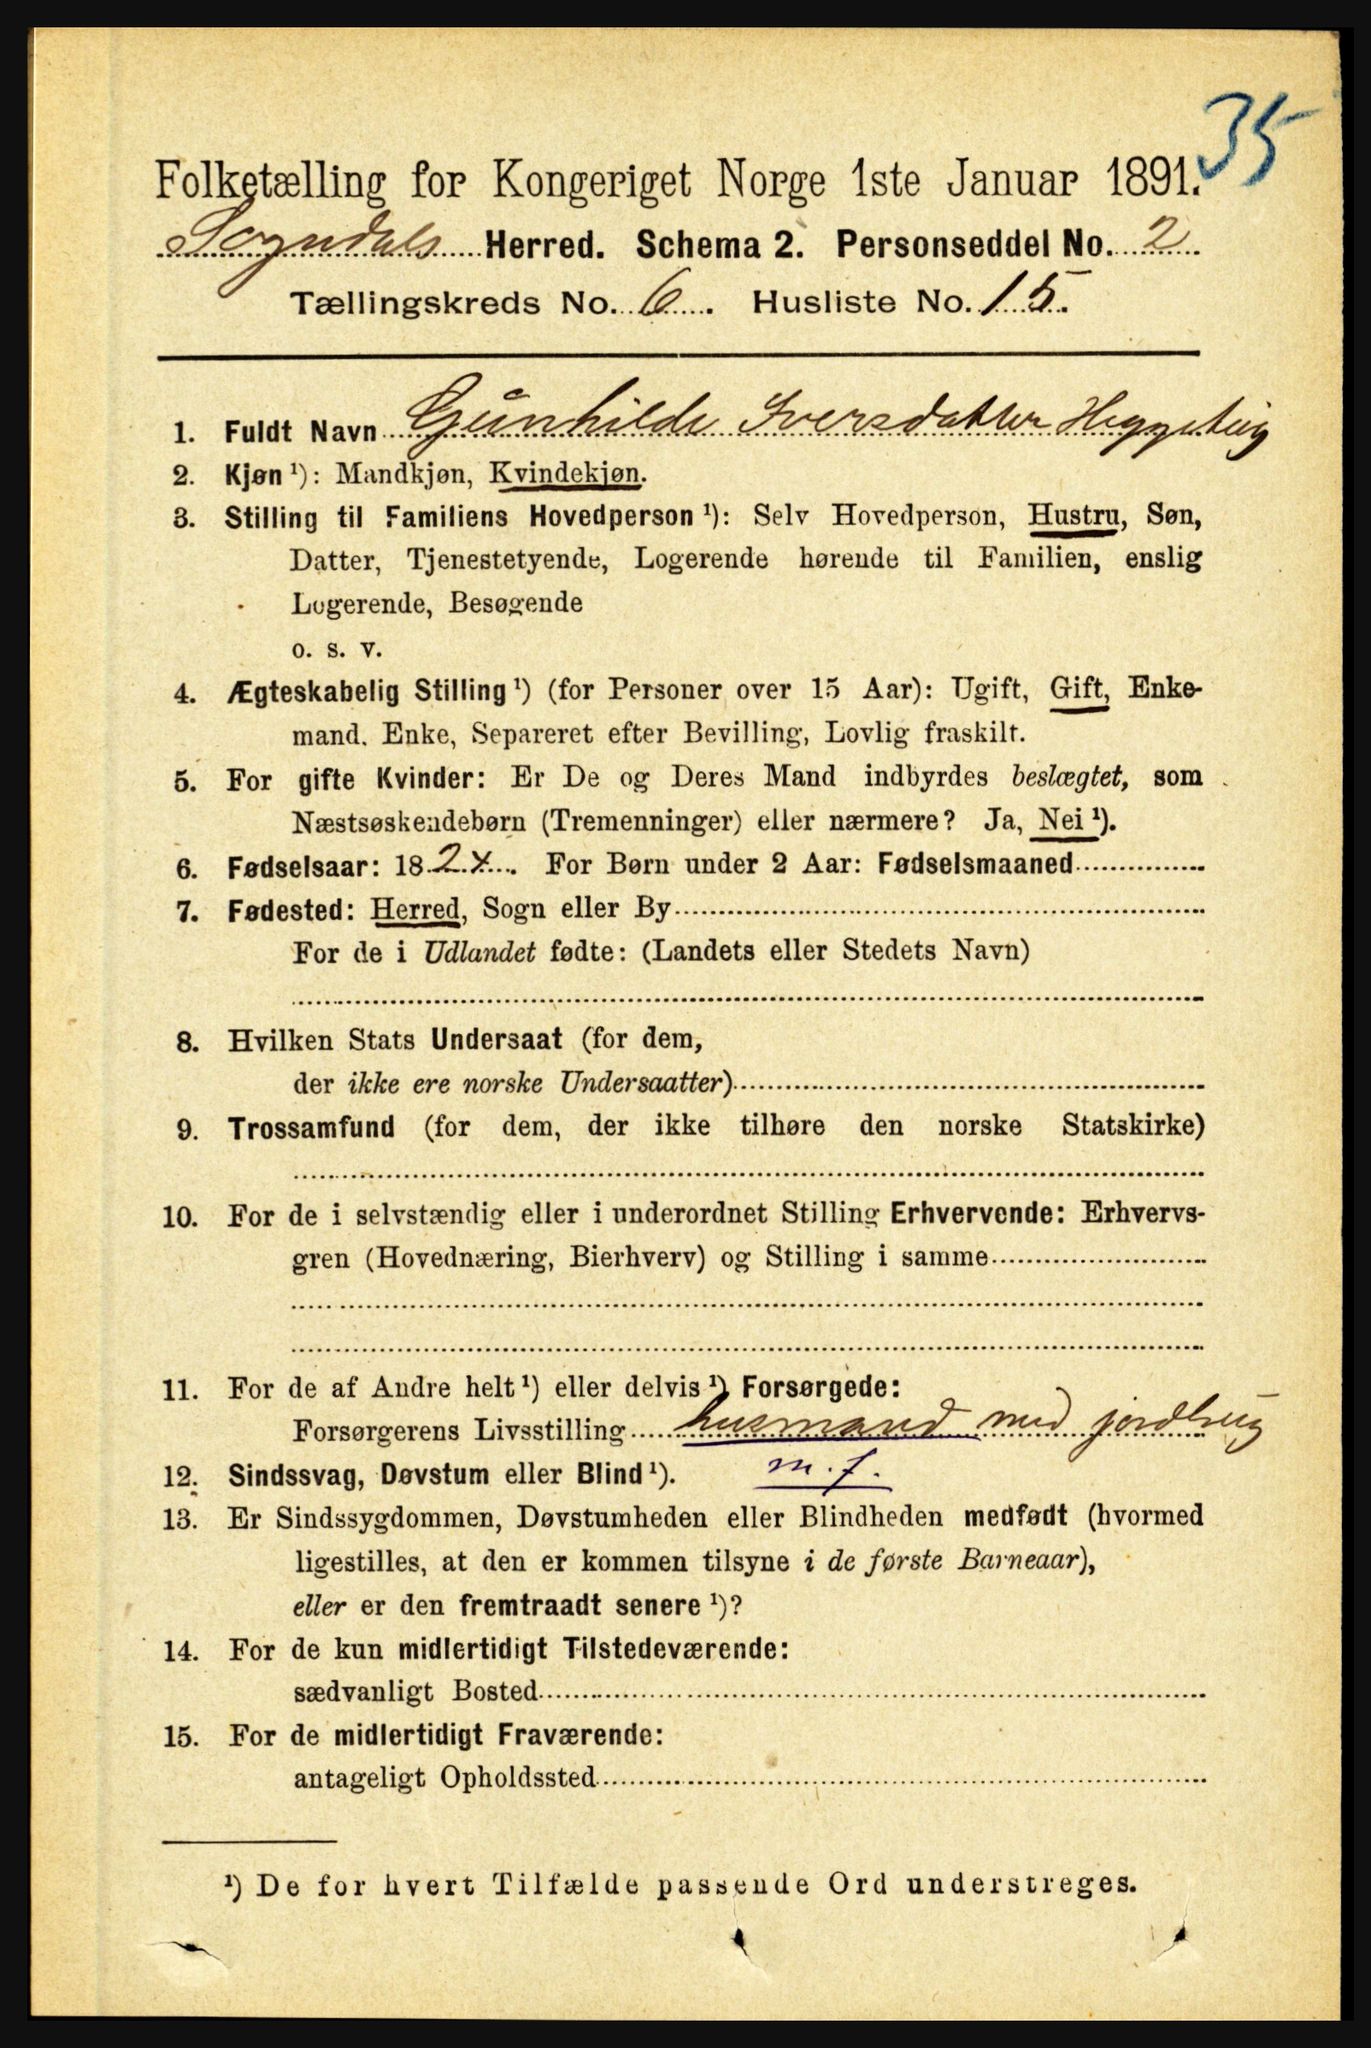 35
Folketælling for Kongeriget Norge 1ste Januar 1891.
Sogndals Herred. Schema 2. Personseddel No. 2
Tællingskreds No. 6. Husliste No. 15.
1. Fuldt Navn Gunhilde Iversdatter Heggestuig
2. Kjøn ¹): Mandkjøn, Kvindekjøn.
3. Stilling til Familiens Hovedperson ¹): Selv Hovedperson, Hustru, Søn,
Datter, Tjenestetyende, Logerende hørende til Familien, enslig
Logerende, Besøgende
o. s. v.
4. Ægteskabelig Stilling ¹) (for Personer over 15 Aar): Ugift, Gift, Enke-
mand, Enke, Separeret efter Bevilling, Lovlig fraskilt.
5. For gifte Kvinder: Er De og Deres Mand indbyrdes beslægtet, som
Næstsøskendebørn (Tremenninger) eller nærmere? Ja, Nei ¹).
6. Fødselsaar: 1824. For Børn under 2 Aar: Fødselsmaaned
7. Fødested: Herred, Sogn eller By
For de i Udlandet fødte: (Landets eller Stedets Navn)
8. Hvilken Stats Undersaat (for dem,
der ikke ere norske Undersaatter)
9. Trossamfund (for dem, der ikke tilhøre den norske Statskirke)
10. For de i selvstændig eller i underordnet Stilling Erhvervende: Erhvervs-
gren (Hovednæring, Bierhverv) og Stilling i samme
11. For de af Andre helt ¹) eller delvis ¹) Forsørgede:
Forsørgerens Livsstilling husmand med jordbrug
12. Sindssvag, Døvstum eller Blind ¹). m. f.
13. Er Sindssygdommen, Døvstumheden eller Blindheden medfødt (hvormed
ligestilles, at den er kommen tilsyne i de første Barneaar),
eller er den fremtraadt senere ¹)?
14. For de kun midlertidigt Tilstedeværende:
sædvanligt Bosted
15. For de midlertidigt Fraværende:
antageligt Opholdssted
¹) De for hvert Tilfælde passende Ord understreges.